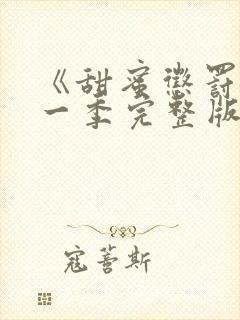 《甜蜜惩罚
一季完整版
寇蓍斯